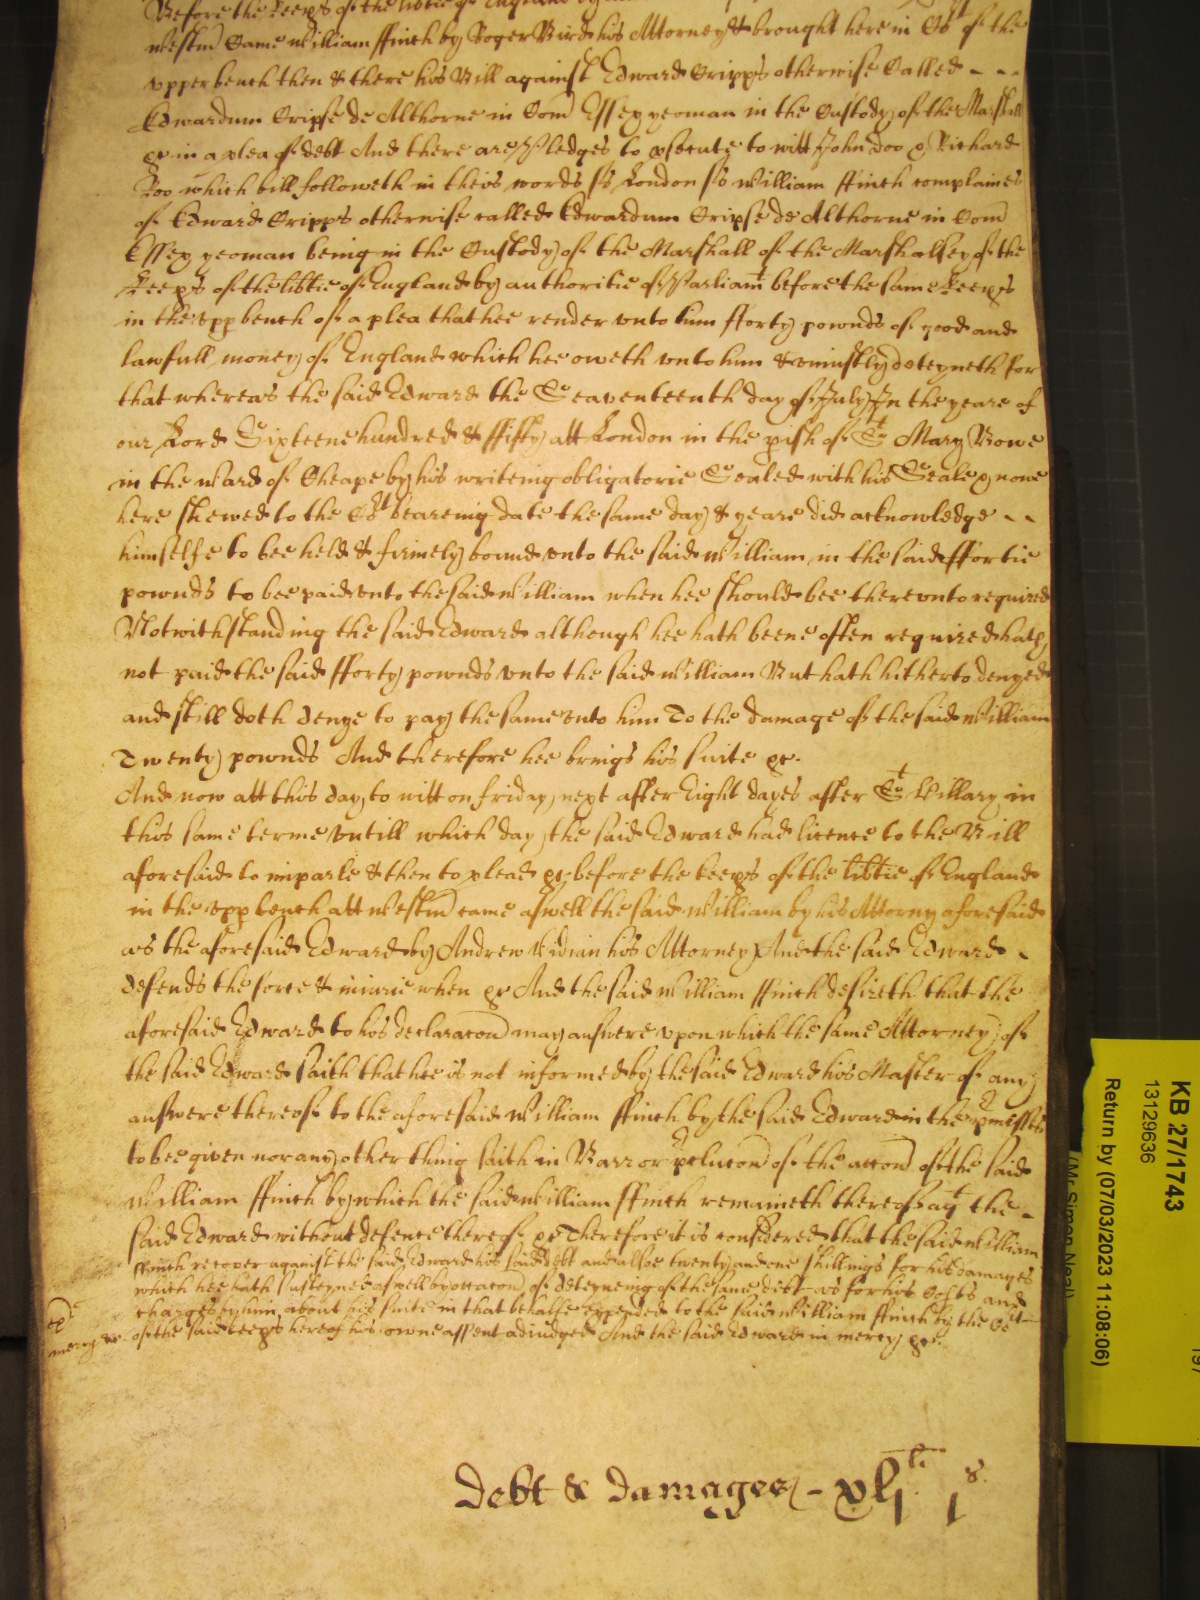 Before the keeps of the libtie of England by
Westm Came William ffinch by Roger Bird his Attorney & brought here in Ct of the
upper bench then & there his Bill against Edward Cripps otherwise Called - - -
Edwardum Cripse de Althorne in Com Essex yeoman in the Custody of the Marshall
&c in a plea of debt And there are Pledges to psecute to witt John Doo & Richard
Roo which bill followeth in theis words ss London ss William ffinch complaines
of Edward Cripps otherwise called Edwardum Cripse de Althorne in Com
Essex yeoman being in the Custody of the Marshall of the Marshalsey of the
keeps of the libtie of England by authoritie of Parliamt before the same keeps
in the upp bench of a plea that hee render unto him fforty pownds of good and
lawfull money of England which hee oweth unto him & uniustly deteyneth for
that whereas the said Edward the Seaventeenth day of July In the yeare of
our Lord Sixteene hundred & ffifty att London in the pish of St Mary Bowe
in the Ward of Cheape by his writeing obligatorie Sealed with his Seale & nowe
here shewed to the Ct beareing date the same day & yeare did acknowledge - -
himselfe to bee held & firmely bound unto the said William in the said ffortie
pownds to bee paid unto the said William when hee should bee thereunto required
Notwithstanding the said Edward although hee hath beene often required hath
not paid the said fforty pownds unto the said William But hath hitherto denyed
and still doth denye to pay the same unto him To the damage of the said William
Twenty pownds And therefore hee brings his suite &c.
And now att this day to witt on friday next after Eight dayes after St Hillary in
this same terme untill which day the said Edward had licence to the Bill
aforesaid to imparle & then to plead &c before the keeps of the libtie of England
in the upp bench att Westm came aswell the said William by his Attorny aforesaid
as the aforesaid Edward by Andrew Vidian his Attorney And the said Edward -
defends the force & iniurie when &c And the said William ffinch desireth that the
aforesaid Edward to his declaracon may answere upon which the same Attorney of
the said Edward saith that hee is not informed by the said Edward his Master of any
answere thereof to the aforesaid William ffinch by the said Edward in the pmisses
to bee given nor any other thing saith in Barr or pclucon of the accon of the said
William ffinch by which the said William ffinch remaineth thereof agt the -
said Edward without defence thereof &c Therefore it is considered that the said William
ffinch recover against the said Edward his said debt and alsoe twenty and one shillings for his damages
which hee hath susteyned aswell by occacon of deteyneing of the same debt as for his Costs and
charges by him about his suite in that behalfe expended to the said William ffinch by the Ct
of the said keeps hereof his owne assent adiudged And the said Edward in mercy &c.
mercy &c.
debt & damages - xlj li js.
KB 27/1743
13129636
Return by (07/03/2023 11:08:06)
(Mr Simon Neal)
197